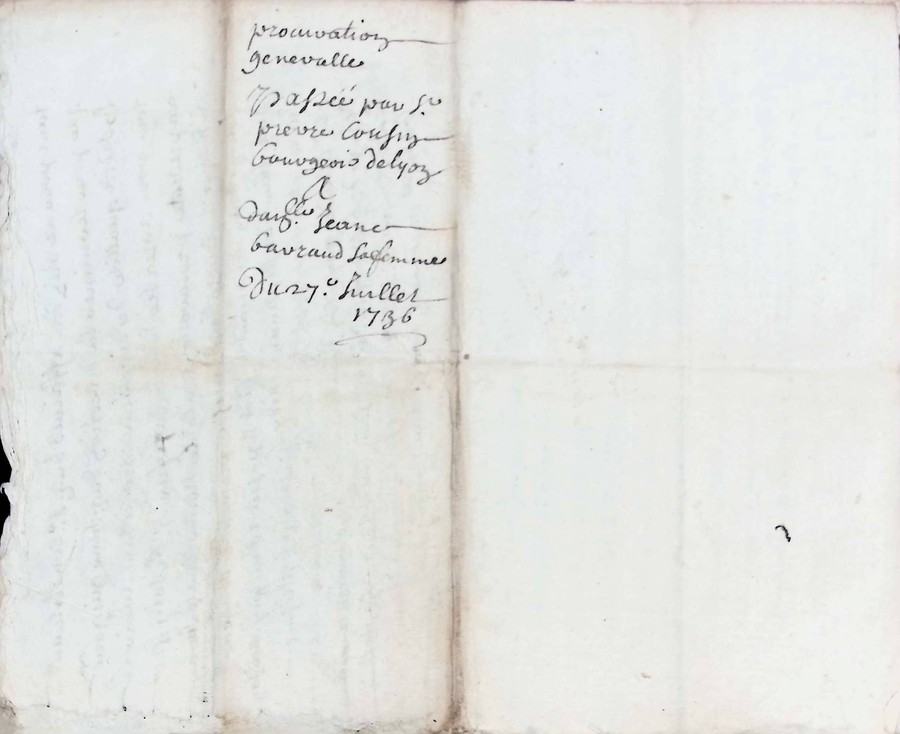 procuration
generalle
passéé par Sr
pierre Cousin
bourgeois de lyon
A
daislle Jeane
barraud sa femme
Du 27e Juillet
1736